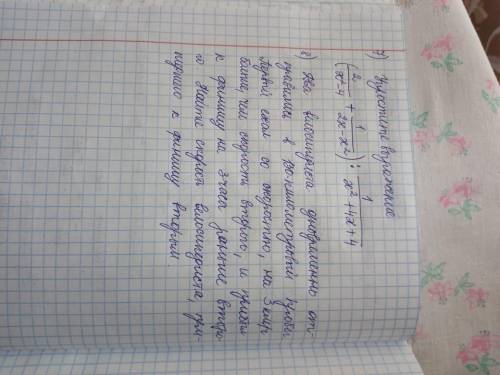 7) Упростите выражение
(2/x²-4 + 1/2x-x²) : 1/x²+4x+4
8) Два велосипедиста одновременно от-
правились в
Первый ехал со скоростью, на 3 км/ч
больше, чем скорость второго, и приехал
к финишу на 3 часа раньше второ-
го. Найти скорость велосипедиста, при-
шедшего к финишу вторым